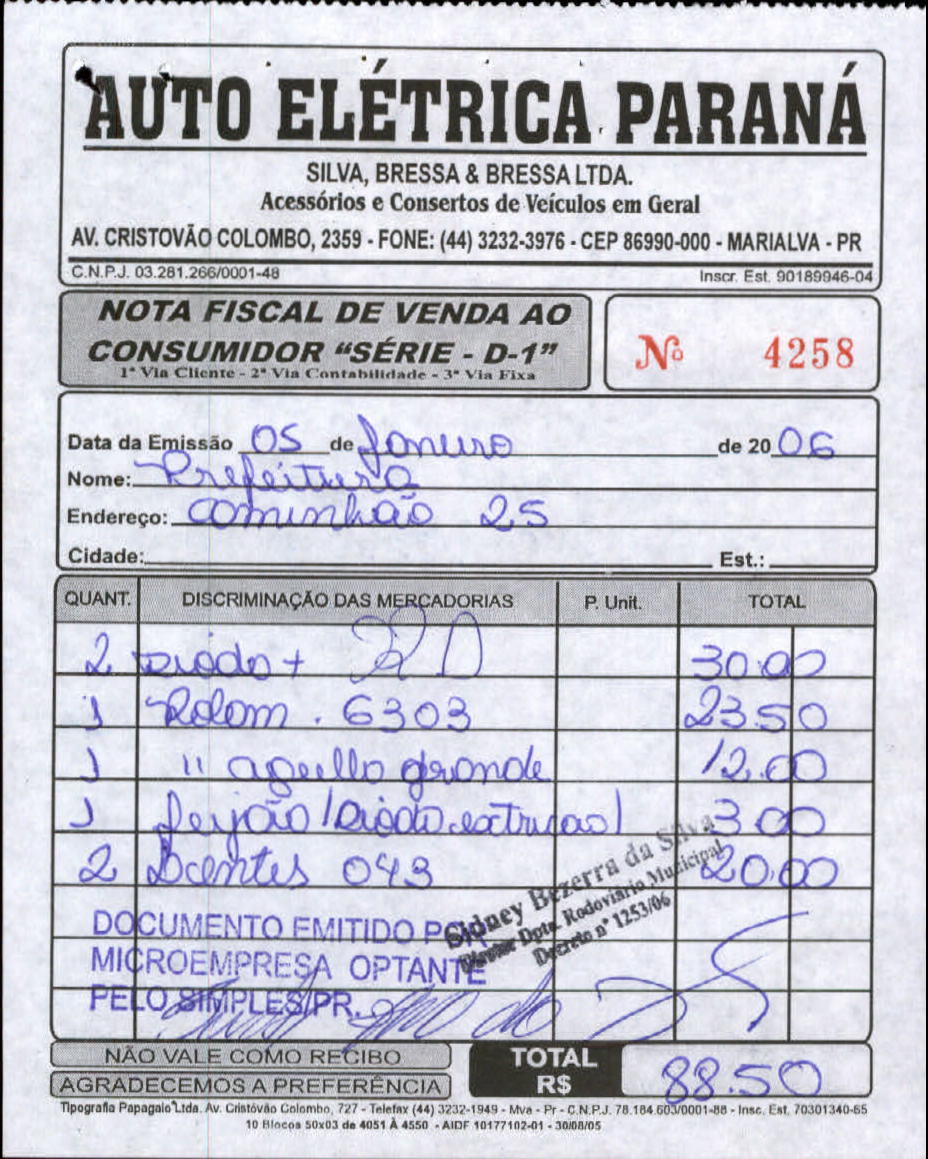 AUTO ELÉTRICA PARANÁ
SILVA, BRESSA & BRESSA LTDA.
Acessórios e Consertos de Veículos em Geral
AV. CRISTOVÃO COLOMBO, 2359 - FONE: (44) 3232-3976 - CEP 86990-000 - MARIALVA - PR
C.N.P.J. 03.281.266/0001-48 Inscr. Est. 90189946-04
NOTA FISCAL DE VENDA AO
CONSUMIDOR “SÉRIE - D-1”
1ª Via Cliente - 2ª Via Contabilidade - 3ª Via Fixa
Nº 4258
Data da Emissão 05 de Janeiro de 20 06
Nome: Prefeitura
Endereço: Caminhão 25
Cidade: Est.:
QUANT. DISCRIMINAÇÃO DAS MERCADORIAS P. Unit. TOTAL
2 Diodo + 30.00
1 Rolam. 6303 23.50
1 " agulha grande 12.00
1 feijão (Diodo 3 00
2 043 20.00
Sidney Bezerra da Silva
Diretor Dpto. Rodoviário Municipal
Decreto nº 1253/06
DOCUMENTO EMITIDO POR
MICROEMPRESA OPTANTE
PELO SIMPLES/PR.
NÃO VALE COMO RECIBO
AGRADECEMOS A PREFERÊNCIA
TOTAL
R$ 88.50
Tipografia Papagaio Ltda. Av. Cristóvão Colombo, 727 - Telefax (44) 3232-1949 - Mva - Pr - C.N.P.J. 78.184.603/0001-88 - Insc. Est. 70301340-65
10 Blocos 50x03 de 4051 À 4550 - AIDF 10177102-01 - 30/08/05